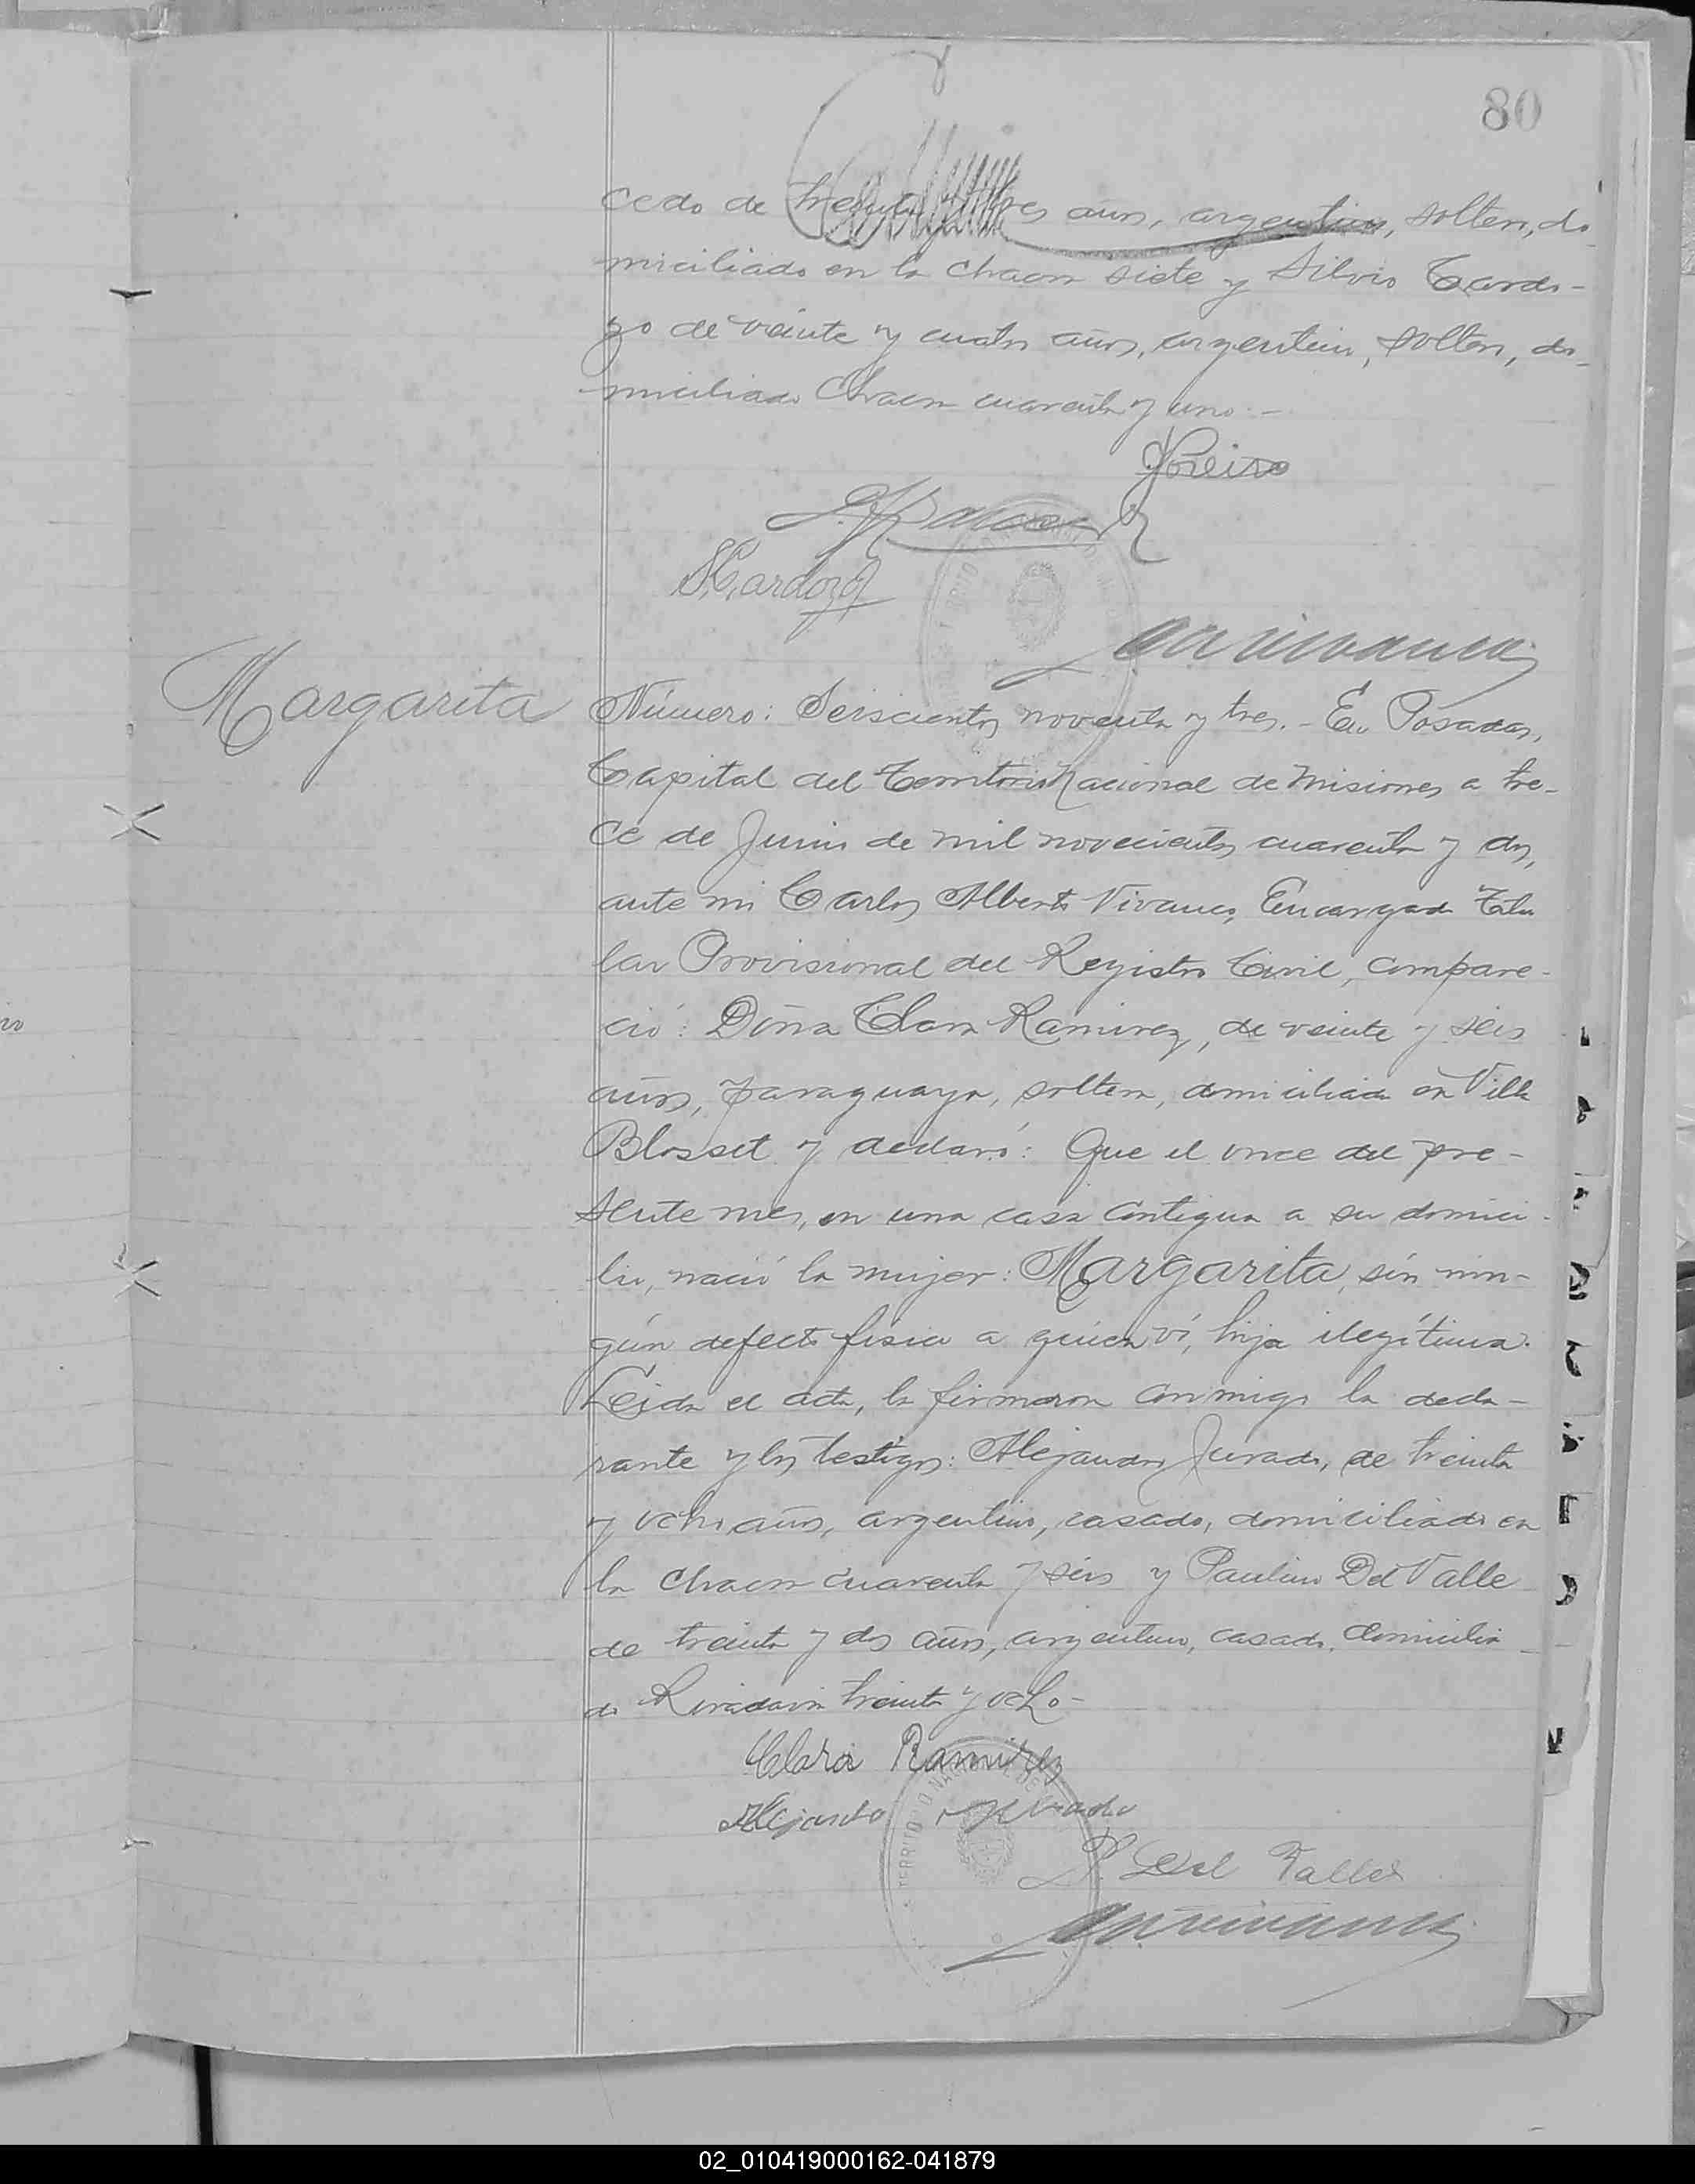 80
cedo de treinta y tres años, argentino, soltero, do
miciliado en la chacra siete y Silvio Cardo-
zo de veinte y cuatro años, argentino, soltero, do-
miciliado Chacra cuarenta y uno.-
S.Cardozo
Margarita
Número: Seiscientos noventa y tres.- En Posadas,
Capital del Territorio Nacional de Misiones a tre-
ce de Junio de mil novecientos cuarenta y dos,
ante mi Carlos Alberto Vivanco, Encargado Titu
lar Provisional del Registro Civil, compare-
ció: Doña Clara Ramirez, de veinte y seis
años, paraguaya, soltera, domiciliada en Villa
Blosset y declaró: Que el once del pre-
sente mes, en una casa contigua a su domici-
lio, nació la mujer: Margarita, sin nin-
gún defecto fisico a quien vi, hija ilegítima.
Leida el acta, la firmaron conmigo la decla-
rante y los testigos: Alejandro Jurado, de treinta
y ocho años, argentino, casado, domiciliado en
la chacra cuarenta y seis y Paulino Del Valle
de treinta y dos años, argentino, casado, domicilia
do Rivadavia treinta y ocho-
Clara Ramirez
Alejandro Jurado
P. Del Valle
02_010419000162-041879